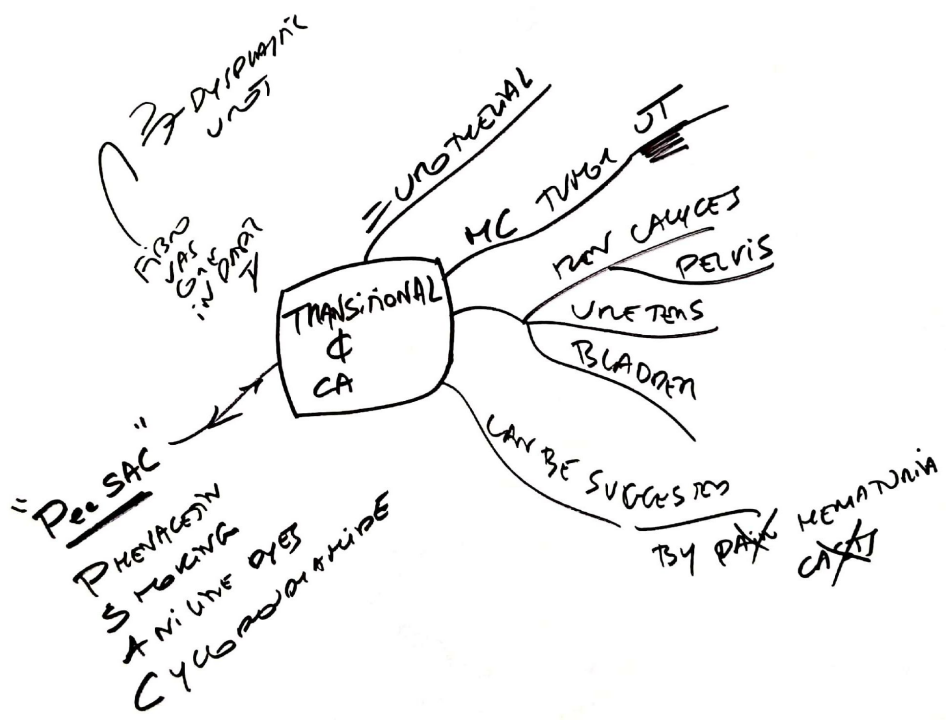 DYSPLASTIC
UROT
FIBRO
VAS
CORE
IN DMAT
= UROTHELIAL
MC TUMOR UT
REN CALYCES
PELVIS
URETERS
BLADDER
TRANSITIONAL
¢
CA
CAN BE SUGGESTED
BY PAIN HEMATURIA
CASTS
"Pee SAC"
PHENACETIN
SMOKING
ANILINE DYES
CYCLOPHOSPHAMIDE